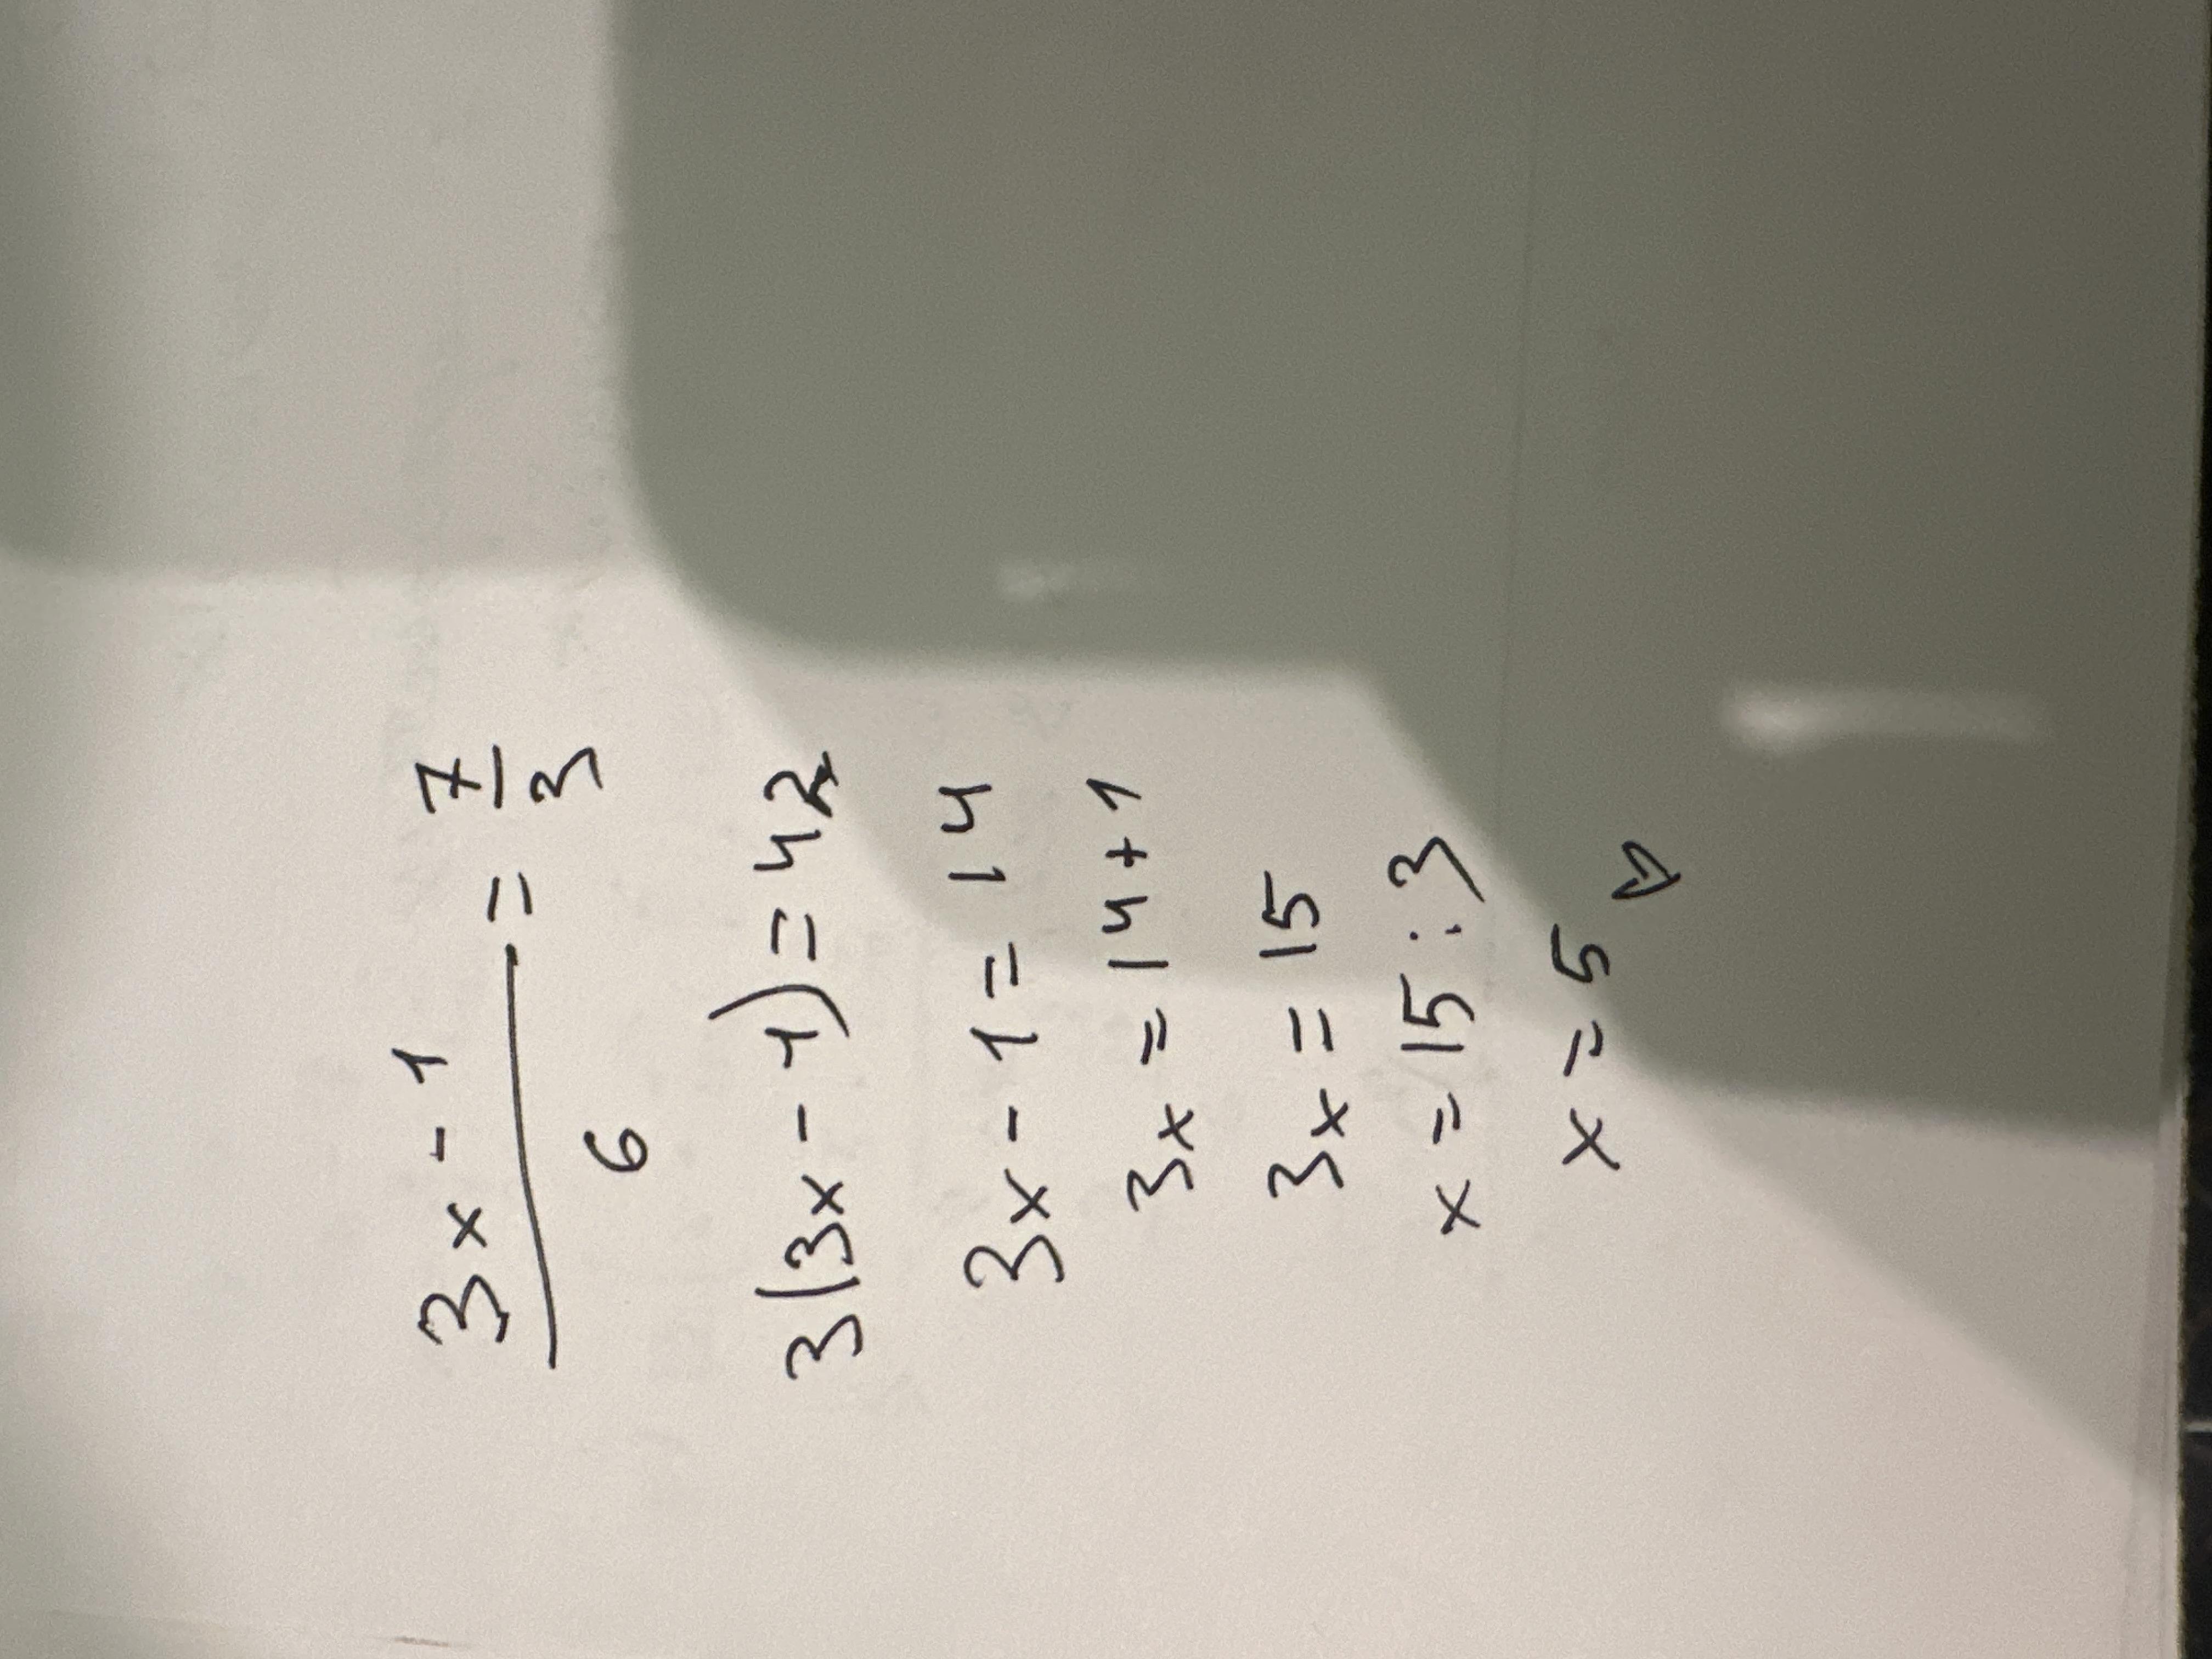 3x - 1 / 6 = 7 / 3
3(3x - 1) = 42
3x - 1 = 14
3x = 14 + 1
3x = 15
x = 15 : 3
x = 5